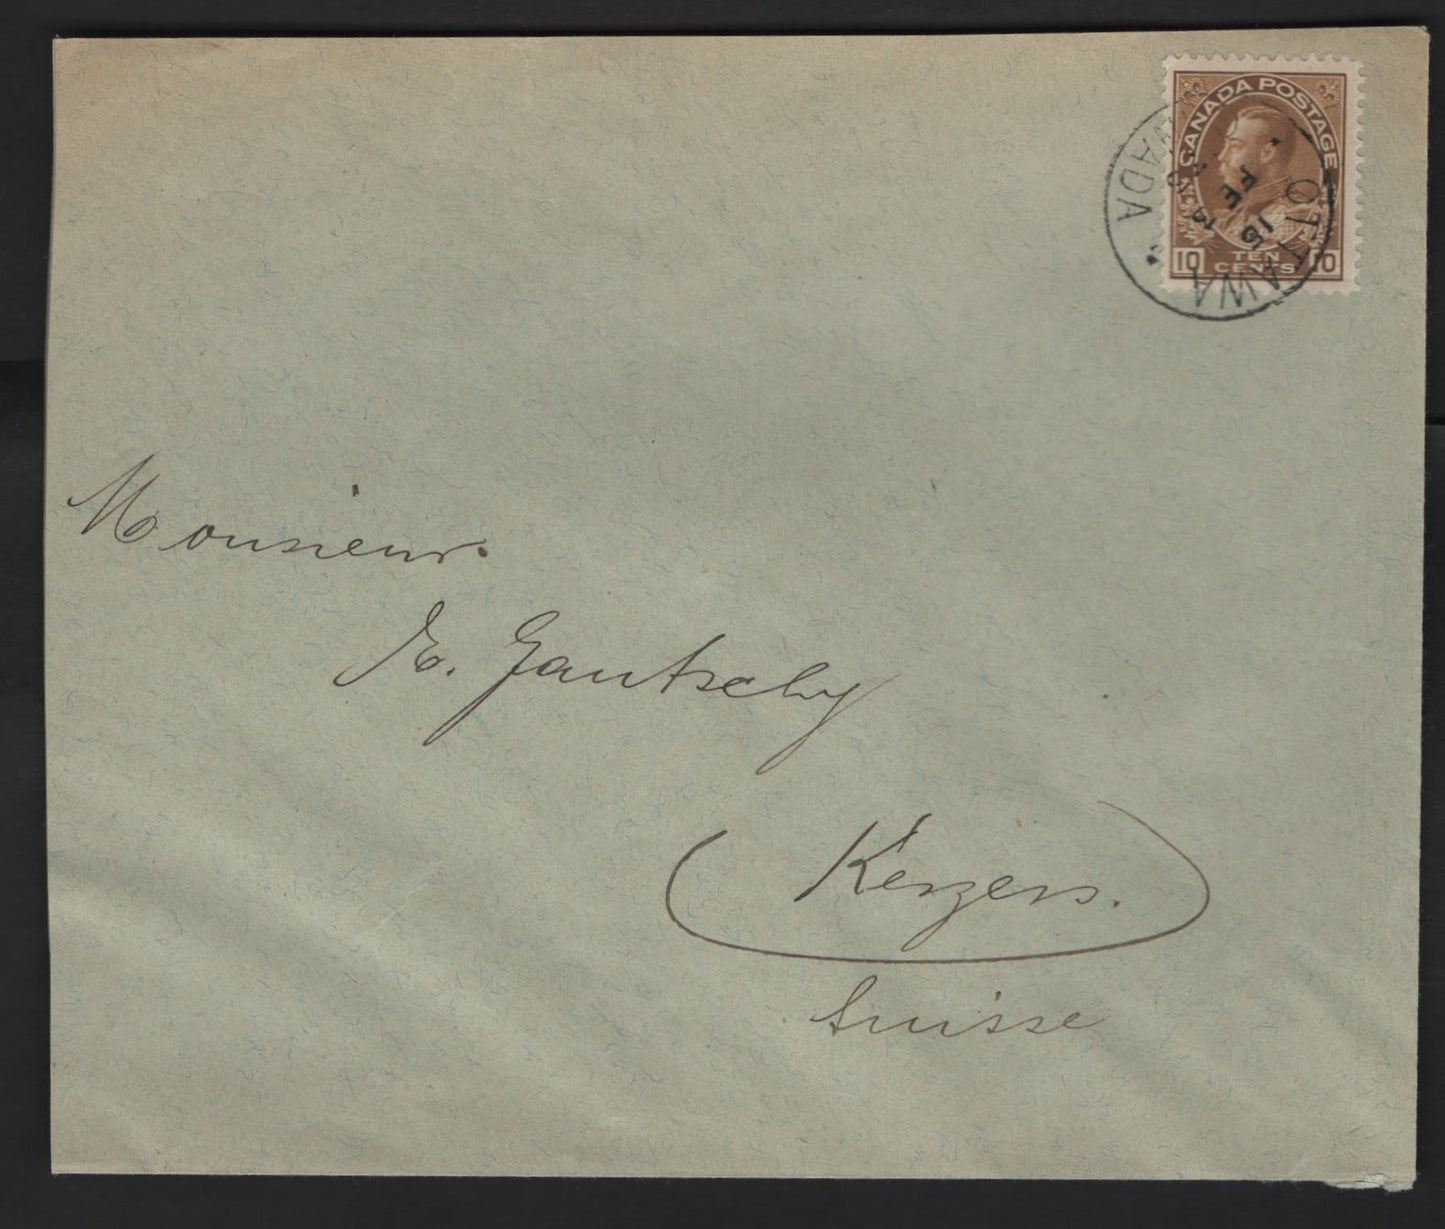 CANADA POSTAGE
10 TEN CENTS 10
OTTAWA
CANADA
FE 15
Monsieur.
E. Gautschy
Kerzers.
Suisse